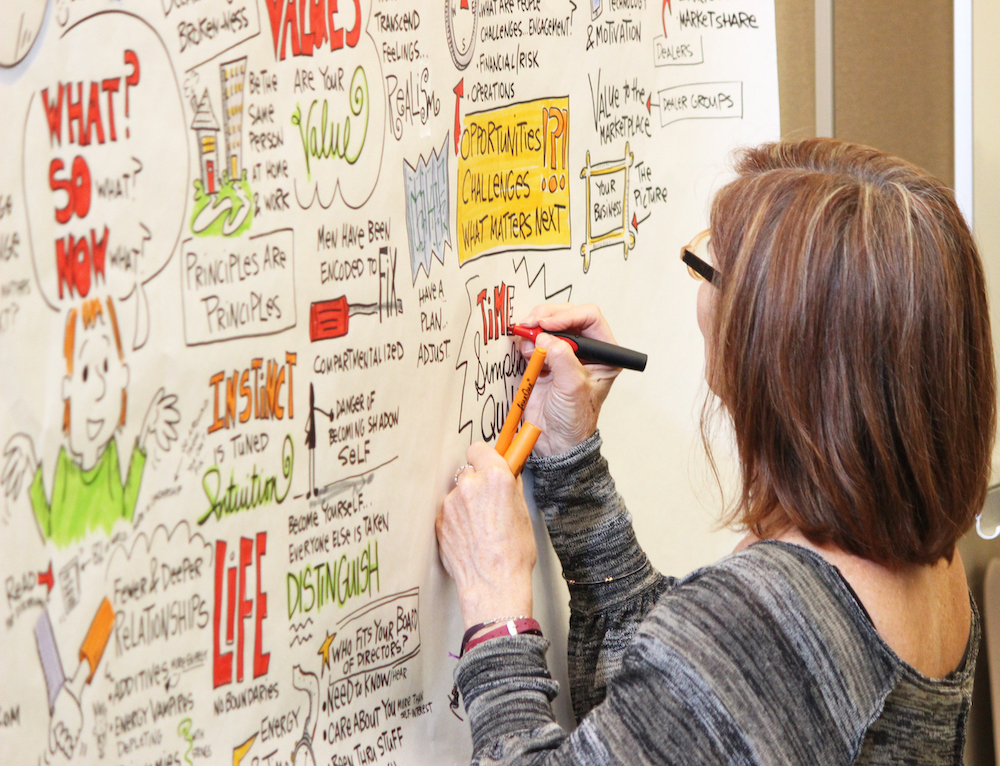 DEALERS
BROKEN-NESS
VALUES
ARE YOUR
Value
TRANSCEND
FEELINGS...
REALISM
WHAT ARE PEOPLE
CHALLENGES...ENGAGEMENT?
• FINANCIAL/RISK
• OPERATIONS
TECHNOLOGY
& MOTIVATION
MARKETSHARE
DEALERS
VALUE TO THE
MARKETPLACE
DEALER GROUPS
WHAT?
SO
WHAT?
NOW
WHAT?
BE THE
SAME
PERSON
AT HOME
& WORK
PRINCIPLES ARE
PRINCIPLES
OPPORTUNITIES
CHALLENGES
!?!
WHAT MATTERS NEXT
YOUR
BUSINESS
THE
PICTURE
MEN HAVE BEEN
ENCODED TO FIX
COMPARTMENTALIZED
HAVE A
PLAN..
ADJUST
TIME
INSTINCT
IS TUNED
Intuition
DANGER OF
BECOMING SHADOW
SELF
BECOME YOURSELF...
EVERYONE ELSE IS TAKEN
DISTINGUISH
READ
FEWER & DEEPER
RELATIONSHIPS
• ADDITIVES
• ENERGY VAMPIRES
DEPLETING
LIFE
NO BOUNDARIES
ENERGY
WHO FITS YOUR BOARD
OF DIRECTORS?
• NEED TO KNOW/HEAR
• CARE ABOUT YOU MORE THAN
SELF-INTEREST
• BEEN THRU STUFF